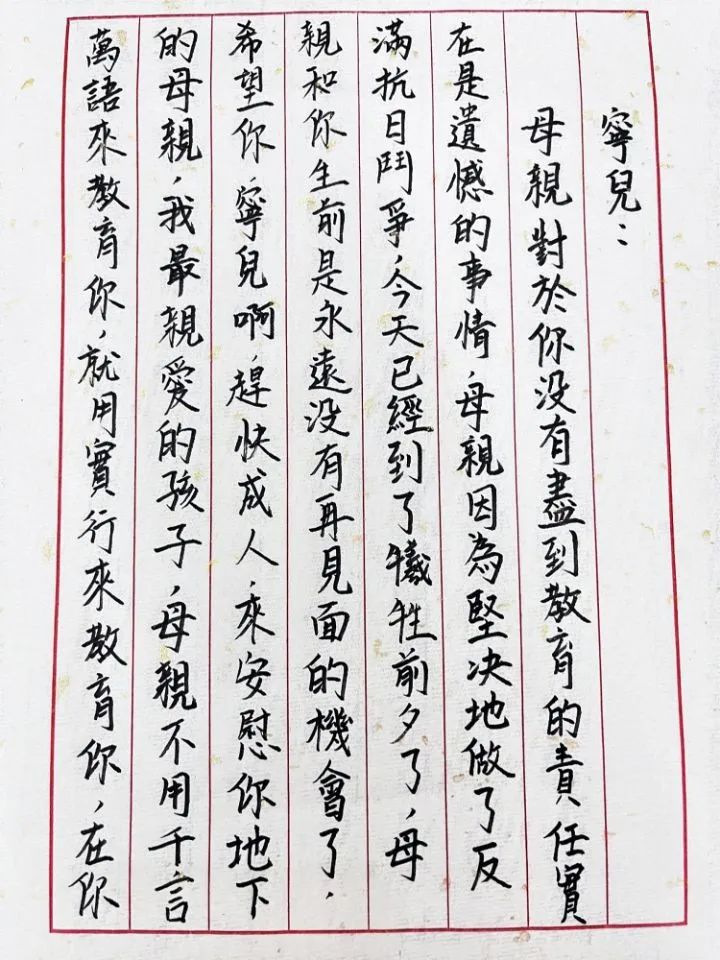 寧兒：
母親對於你没有盡到教育的責任實
在是遺憾的事情，母親因為堅决地做了反
滿抗日鬥爭，今天已經到了犧牲前夕了，母
親和你生前是永遠没有再見面的機會了，
希望你，寧兒啊，趕快成人，來安慰你地下
的母親，我最親愛的孩子，母親不用千言
萬語來教育你，就用實行來教育你，在你